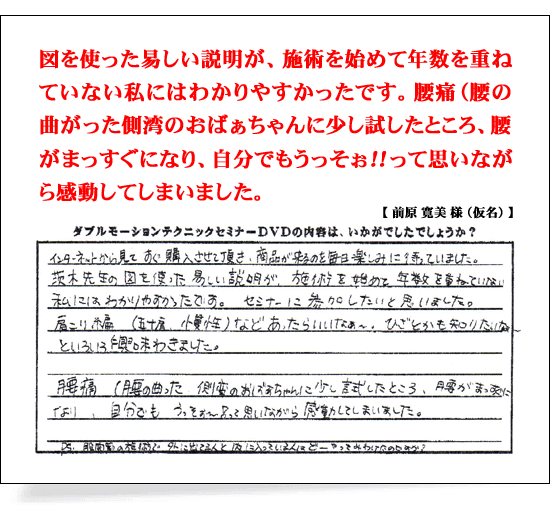 図を使った易しい説明が、施術を始めて年数を重ね
ていない私にはわかりやすかったです。腰痛（腰の
曲がった側湾のおばぁちゃんに少し試したところ、腰
がまっすぐになり、自分でもうっそぉ!!って思いなが
ら感動してしまいました。
【 前原 寛美 様（仮名）】
ダブルモーションテクニックセミナーDVDの内容は、いかがでしたでしょうか？
インターネットから見て すぐ購入させて頂き、商品が来るのを毎日楽しみに待っていました。
茨木先生の図を使った易しい説明が、施術を始めて年数を重ねていない
私にはわかりやすかったです。 セミナーに参加したいと思いました。
肩こり （五十肩、 など あったらいいなぁ〜、ひざとかも知りたいな〜
といろいろ興味わきました。
腰痛（腰の曲った 側弯のおばぁちゃんに少し試したところ、腰がまっすぐに
なり、自分でも うっそぉ〜って思いながら感動してしまいました。
PS.